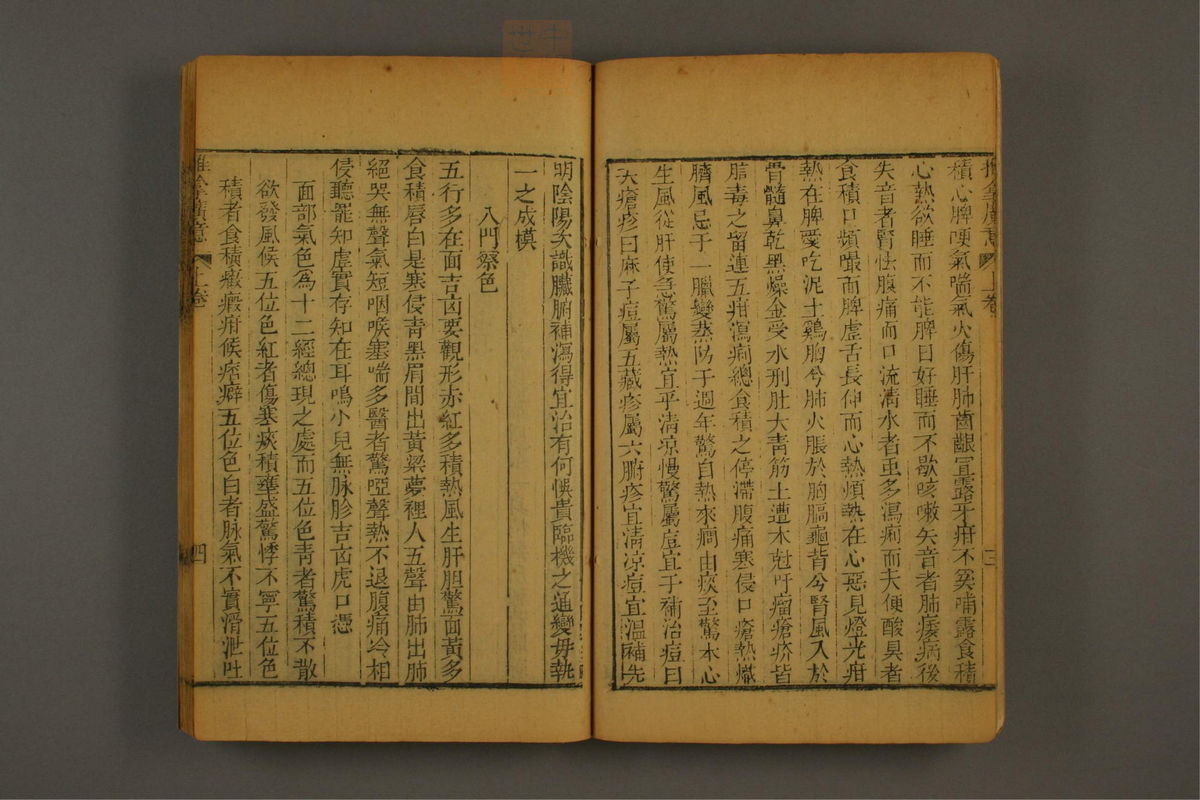 積心脾哽氣喘氣火傷肝肺齒齦宣露牙疳不笑哺露食積
心熱欲睡而不能脾日好睡而不歇咳嗽矢音者肺痿病後
失音者腎怯腹痛而口流清水者虫多瀉痢而大便酸臭者
食積口頻撮而脾虛舌長伸而心熱煩熱在心惡見燈光疳
熱在脾愛吃泥土鷄胸兮肺火脹於胸膈龜背兮腎風入於
骨髓鼻乾黑燥金受水刑肚大青筋土遭木尅吁瘤瘡疥皆
胎毒之留連五疳瀉痢總食積之停滯腹痛寒侵口瘡熱熾
臍風忌于一臘變蒸防于週年驚自熱來癇由痰至驚本心
生風從肝使急驚屬熱宜乎清凉慢驚屬虛宜于補治痘曰
天瘡疹曰麻子痘屬五藏疹屬六腑疹宜清涼痘宜溫補先
三
明陰陽次識臟腑補瀉得宜治有何悞貴臨機之通變毋執
一之成模
八門察色
五行多在面吉凶要觀形赤紅多積熱風生肝胆驚面黃多
食積唇白是寒侵青黑眉間出黃梁夢裡人五聲由肺出肺
絕哭無聲氣短咽喉塞喘多醫者驚啞聲熱不退腹痛冷相
侵聽罷知虛實存知在耳鳴小兒無脉胗吉凶虎口憑
面部氣色爲十二經總現之處而五位色青者驚積不散
欲發風候五位色紅者傷寒痰積壅盛驚悸不寧五位色
積者食積癥瘕疳候痞癖五位色白者脉氣不實滑泄吐
推拿廣意
上卷
四